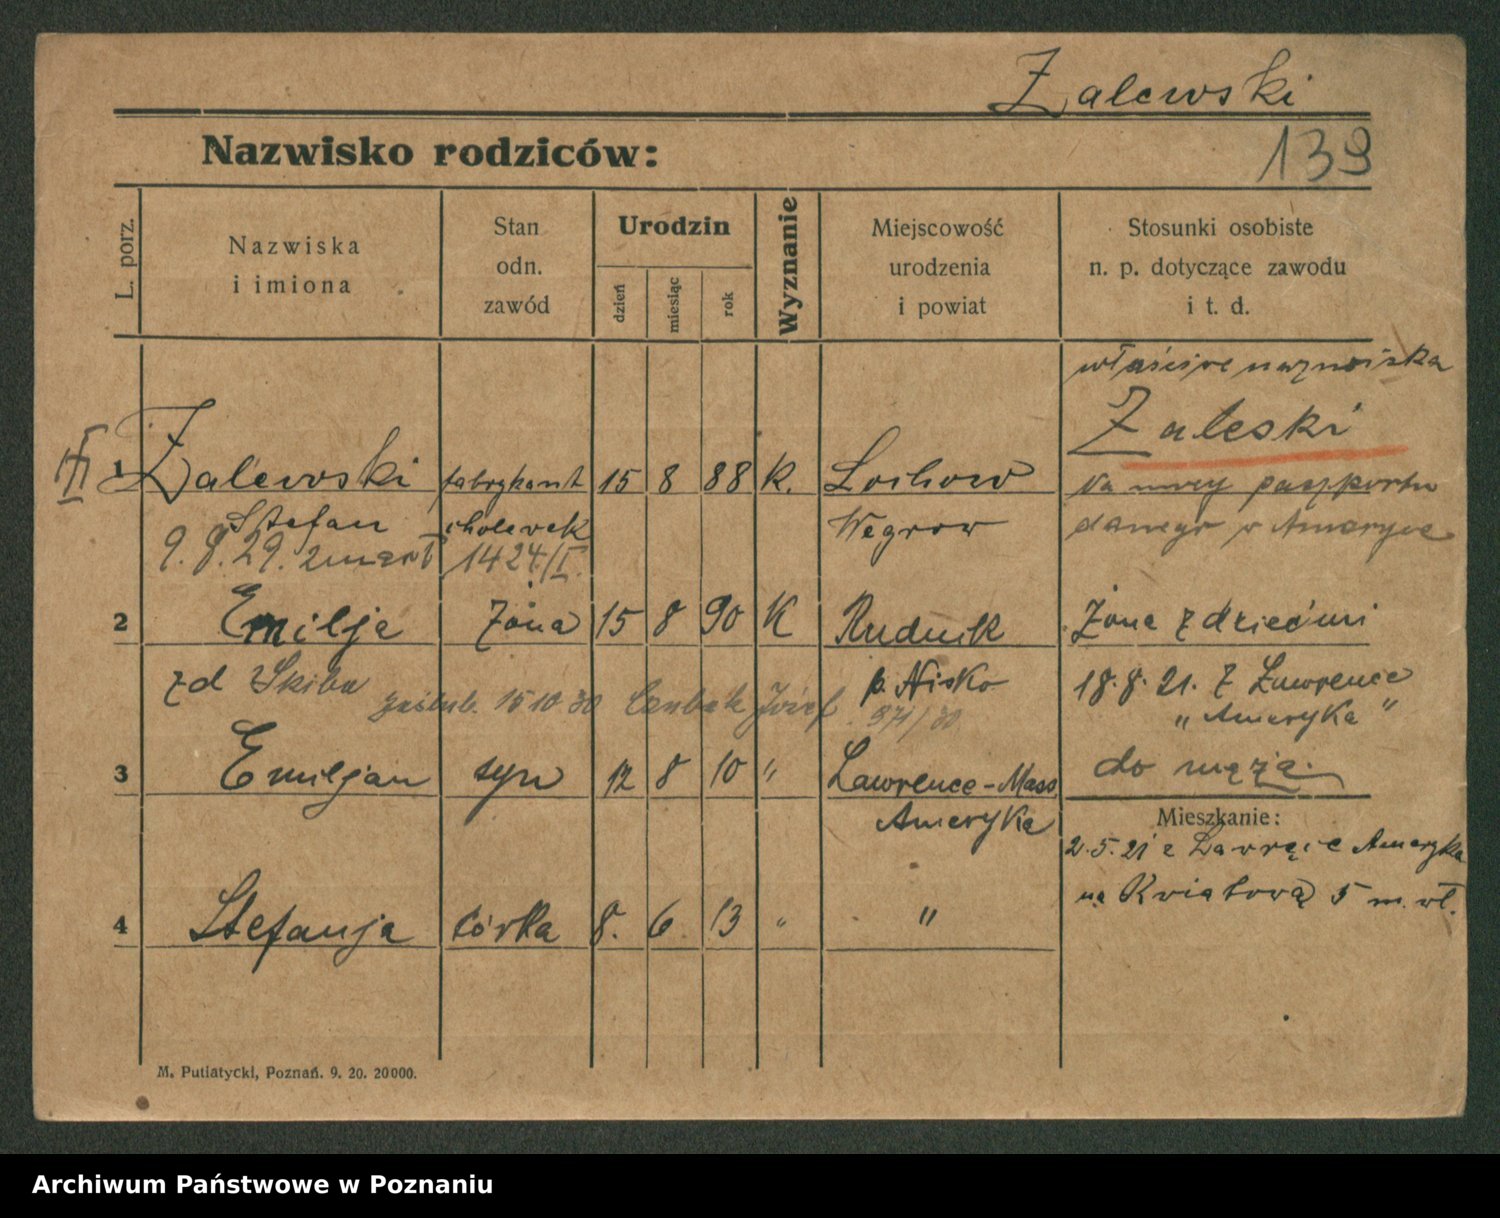 Zalewski
Nazwisko rodziców:
139
L. porz.
Nazwiska
i imiona
Stan
odn.
zawód
Urodzin
dzień
miesiąc
rok
Wyznanie
Miejscowość
urodzenia
i powiat
Stosunki osobiste
n. p. dotyczące zawodu
i t. d.
właściwe nazwiska
Zaleski
na mocy paszportu
danego w Ameryce
1 Zalewski fabrykant 15 8 88 K. Lochow
Stefan cholewek Węgrow
9.8.29. zmarł 1424/I.
2 Emilja żona 15 8 90 K Rudnik Żona z dziećmi
zd Skiba p. Nisko 18.8.21. z Lawrence
zaślub. 15 10 30 Józef 971/30 „Ameryka"
3 Emiljan syn 12 8 10 " Lawrence-Mass do męża.
Ameryka
Mieszkanie:
2.5.21 z Ameryka
na Kwiatową 5 m. wł.
4 Stefanja córka 8. 6. 13 " "
M. Putiatycki, Poznań. 9. 20. 20000.
Archiwum Państwowe w Poznaniu